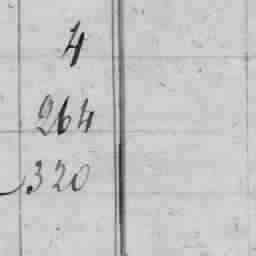 4
264
320